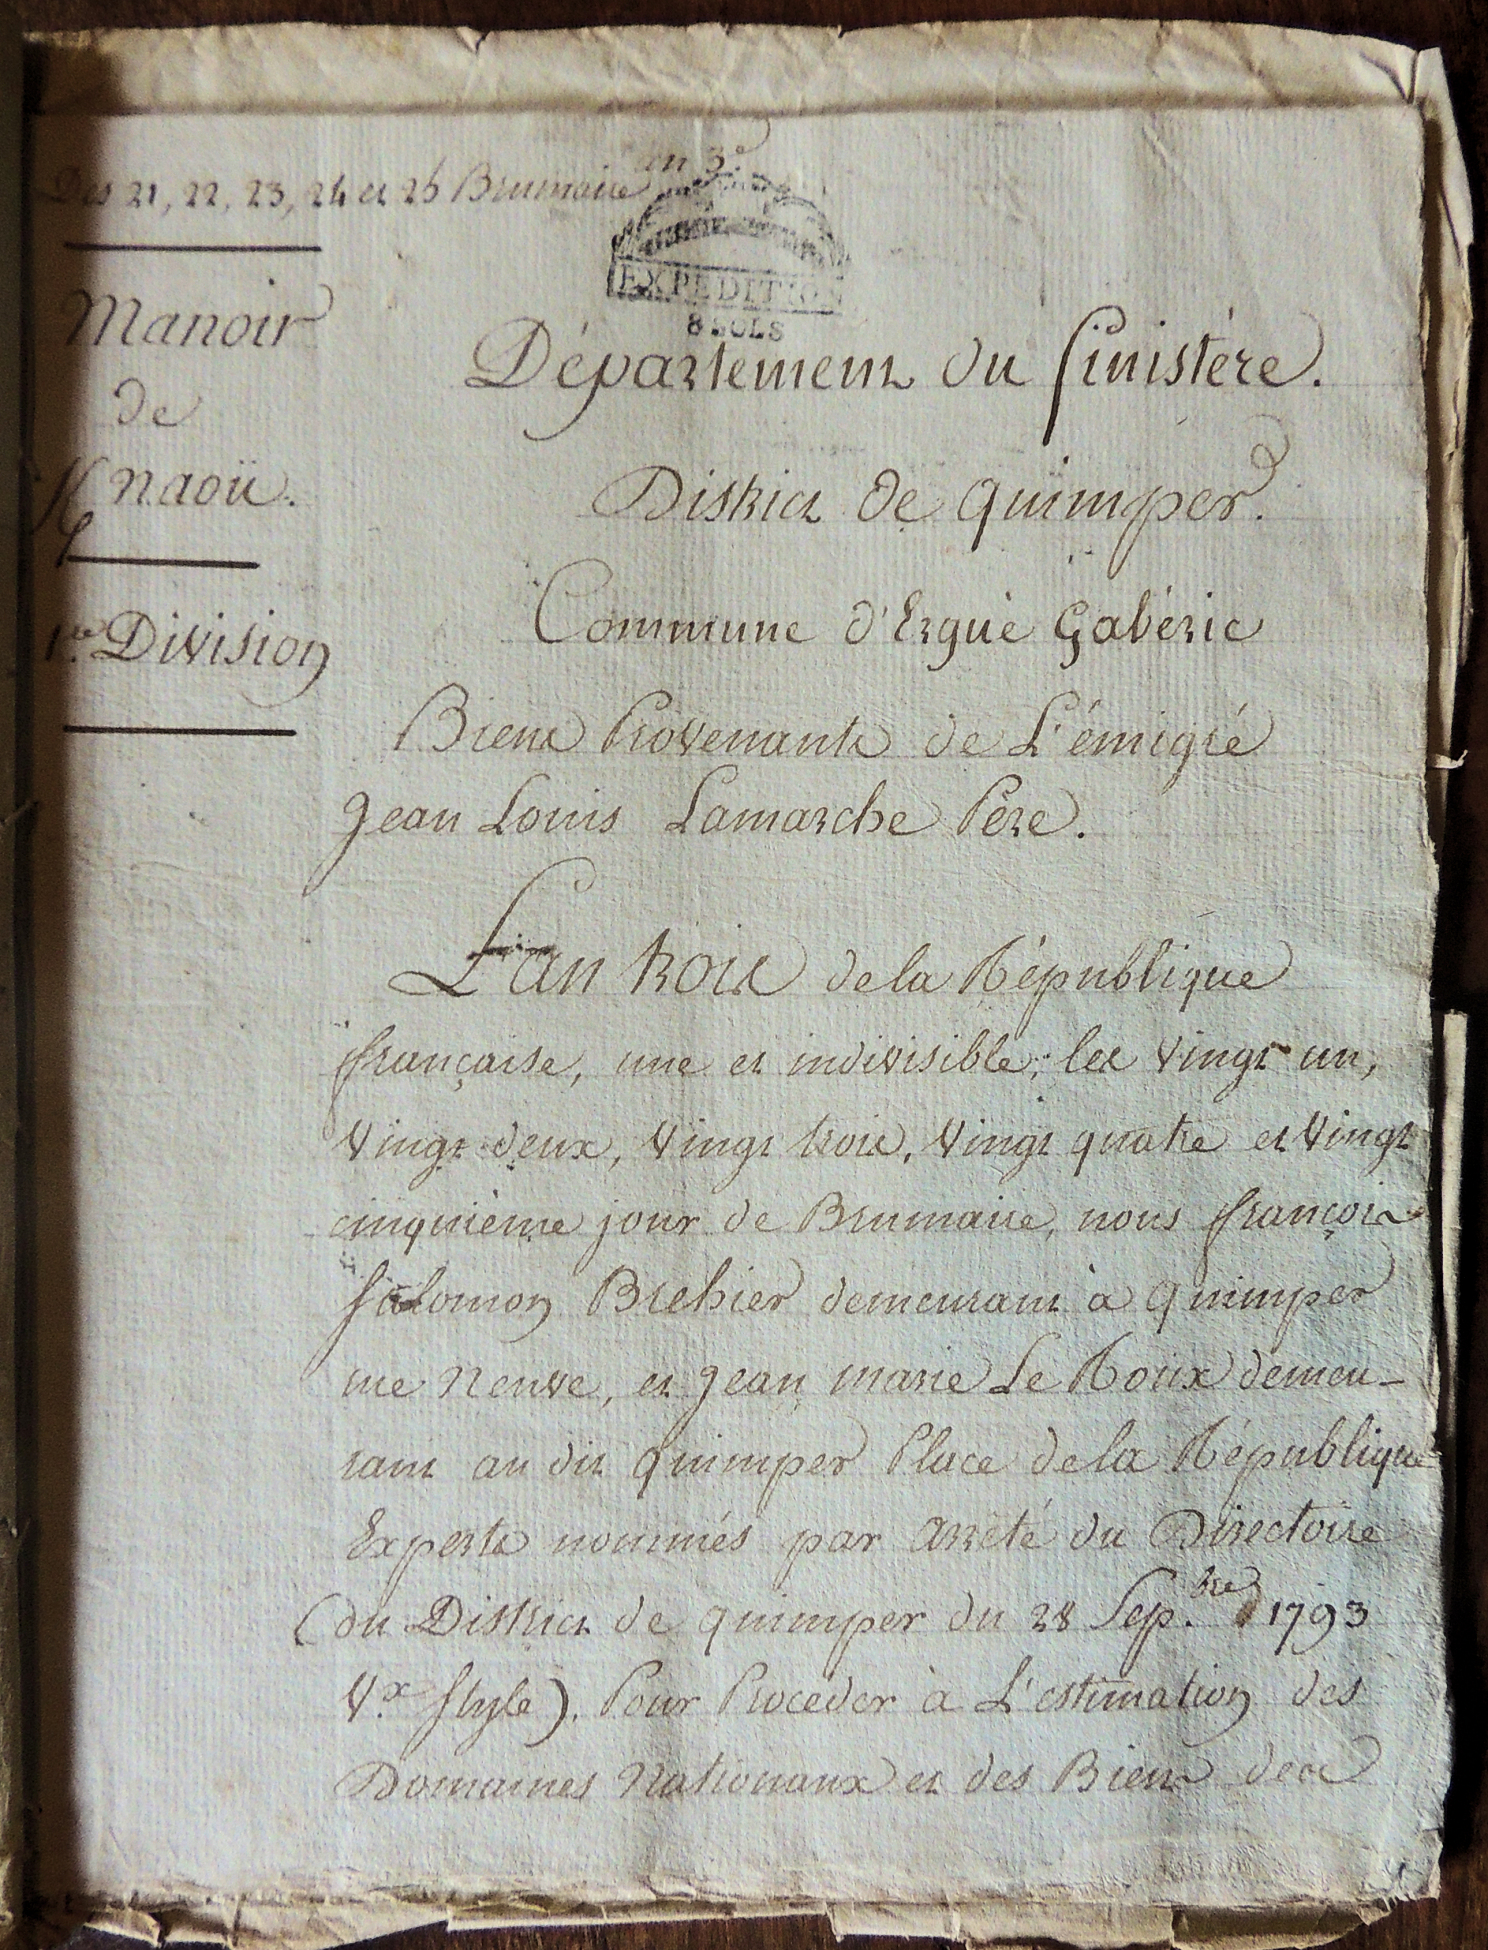 an 3.e
Des 21, 22, 23, 24 et 25 Brumaire
EXPEDITION
8 SOLS
Manoir
de
K/naoü.
1re Division
Département du finistére.
District de quimper.
Commune d'Ergué gabéric
Biens Provenants de L'émigré
jean Louis Lamarche Pére.
L'an trois de la République
française, une et indivisible, les vingt un,
vingt deux, vingt trois, vingt quatre et vingt
cinquième jour de Brumaire, nous françois
salomon Brehier demeurant à quimper
rue neuve, et jean marie Le Roux demeu-
rant au dit quimper Place de la République
Experts nommés par arreté du Directoire
(du District de quimper du 28 Sep.bre 1793
Vx. style). Pour Proceder à L'estimation des
Domaines nationaux et des Biens des